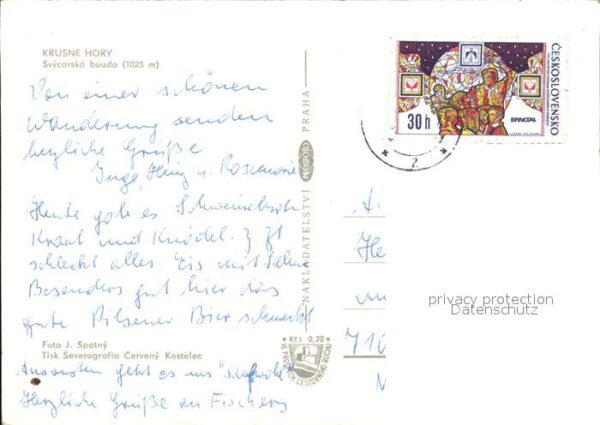 KRUSNÉ HORY
Švýcarská bouda (1025 m)
Von einer schönen
Wanderung senden
herzliche Grüße
Inge, Heinz u. Rosemarie
Heute gab es
Kraut und Knödel. Z. Zt
schleckt alles Eis mit Sahne
Besonders gut hier das
gute Pilsener Bier schmeckt
Foto J. Spatný
Tisk Severografia Červený Kostelec
Ansonsten geht es uns
Herzliche Grüße an Fischers
NAKLADATELSTVÍ
PRESSFOTO
PRAHA
Kčs 0,20
VE PROSPĚCH CESTOVNÍHO RUCHU
ČESKOSLOVENSKO
30 h
BRNO 74
2
710
privacy protection
Datenschutz